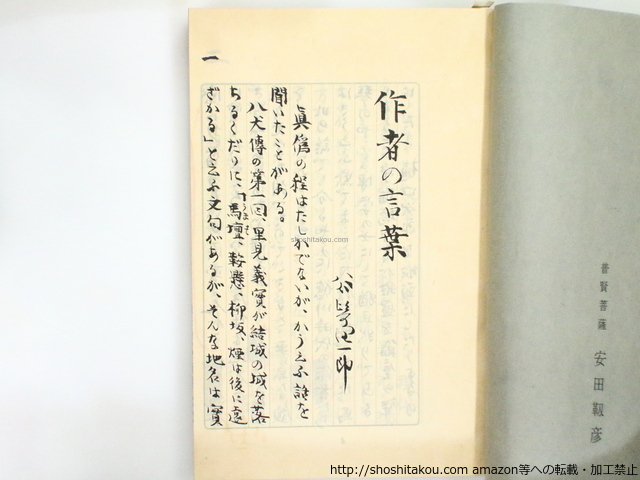 普賢菩薩 安田靫彦
作者の言葉
谷崎潤一郎
眞僞の程はたしかでないが、かう云ふ話を
聞いたことがある。
八犬傳の第一回、里見義實が結城の城を落
ちるくだりに、「馬壇、鞍懸、柳坂、煙は後に遠
ざかる」と云ふ文句があるが、そんな地名は實
一
shoshitakou.com
http://shoshitakou.com amazon等への転載・加工禁止